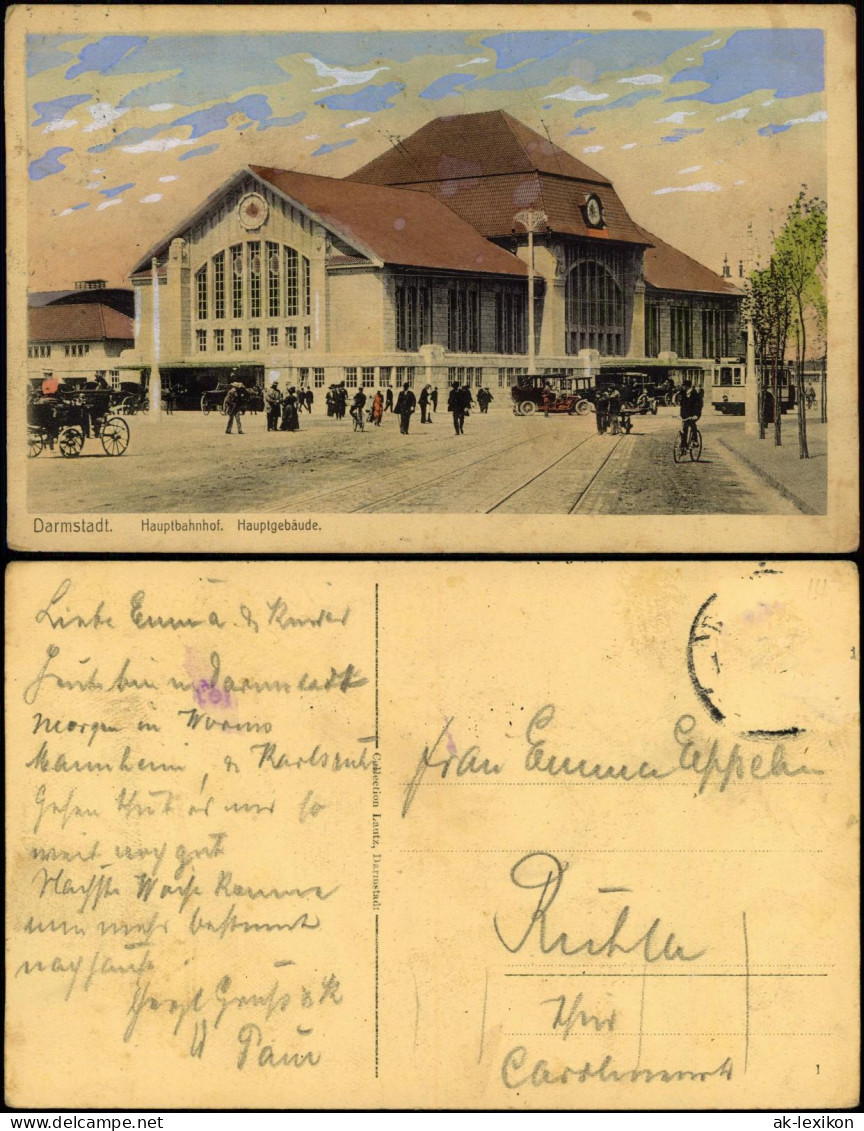 Darmstadt. Hauptbahnhof. Hauptgebäude.
Liebe Emma & Kinder
Heute bin in Darmstadt
morgen in Worms
Mannheim, & Karlsruh
Gehen thut es mir so
weit noch gut
Nächste Woche komme
nun mehr bestimmt
nach Hause
Herzl Gruß & K
Paul
Collection Lautz, Darmstadt
Frau Emma
Ruhla
Thür
1
ak-lexikon